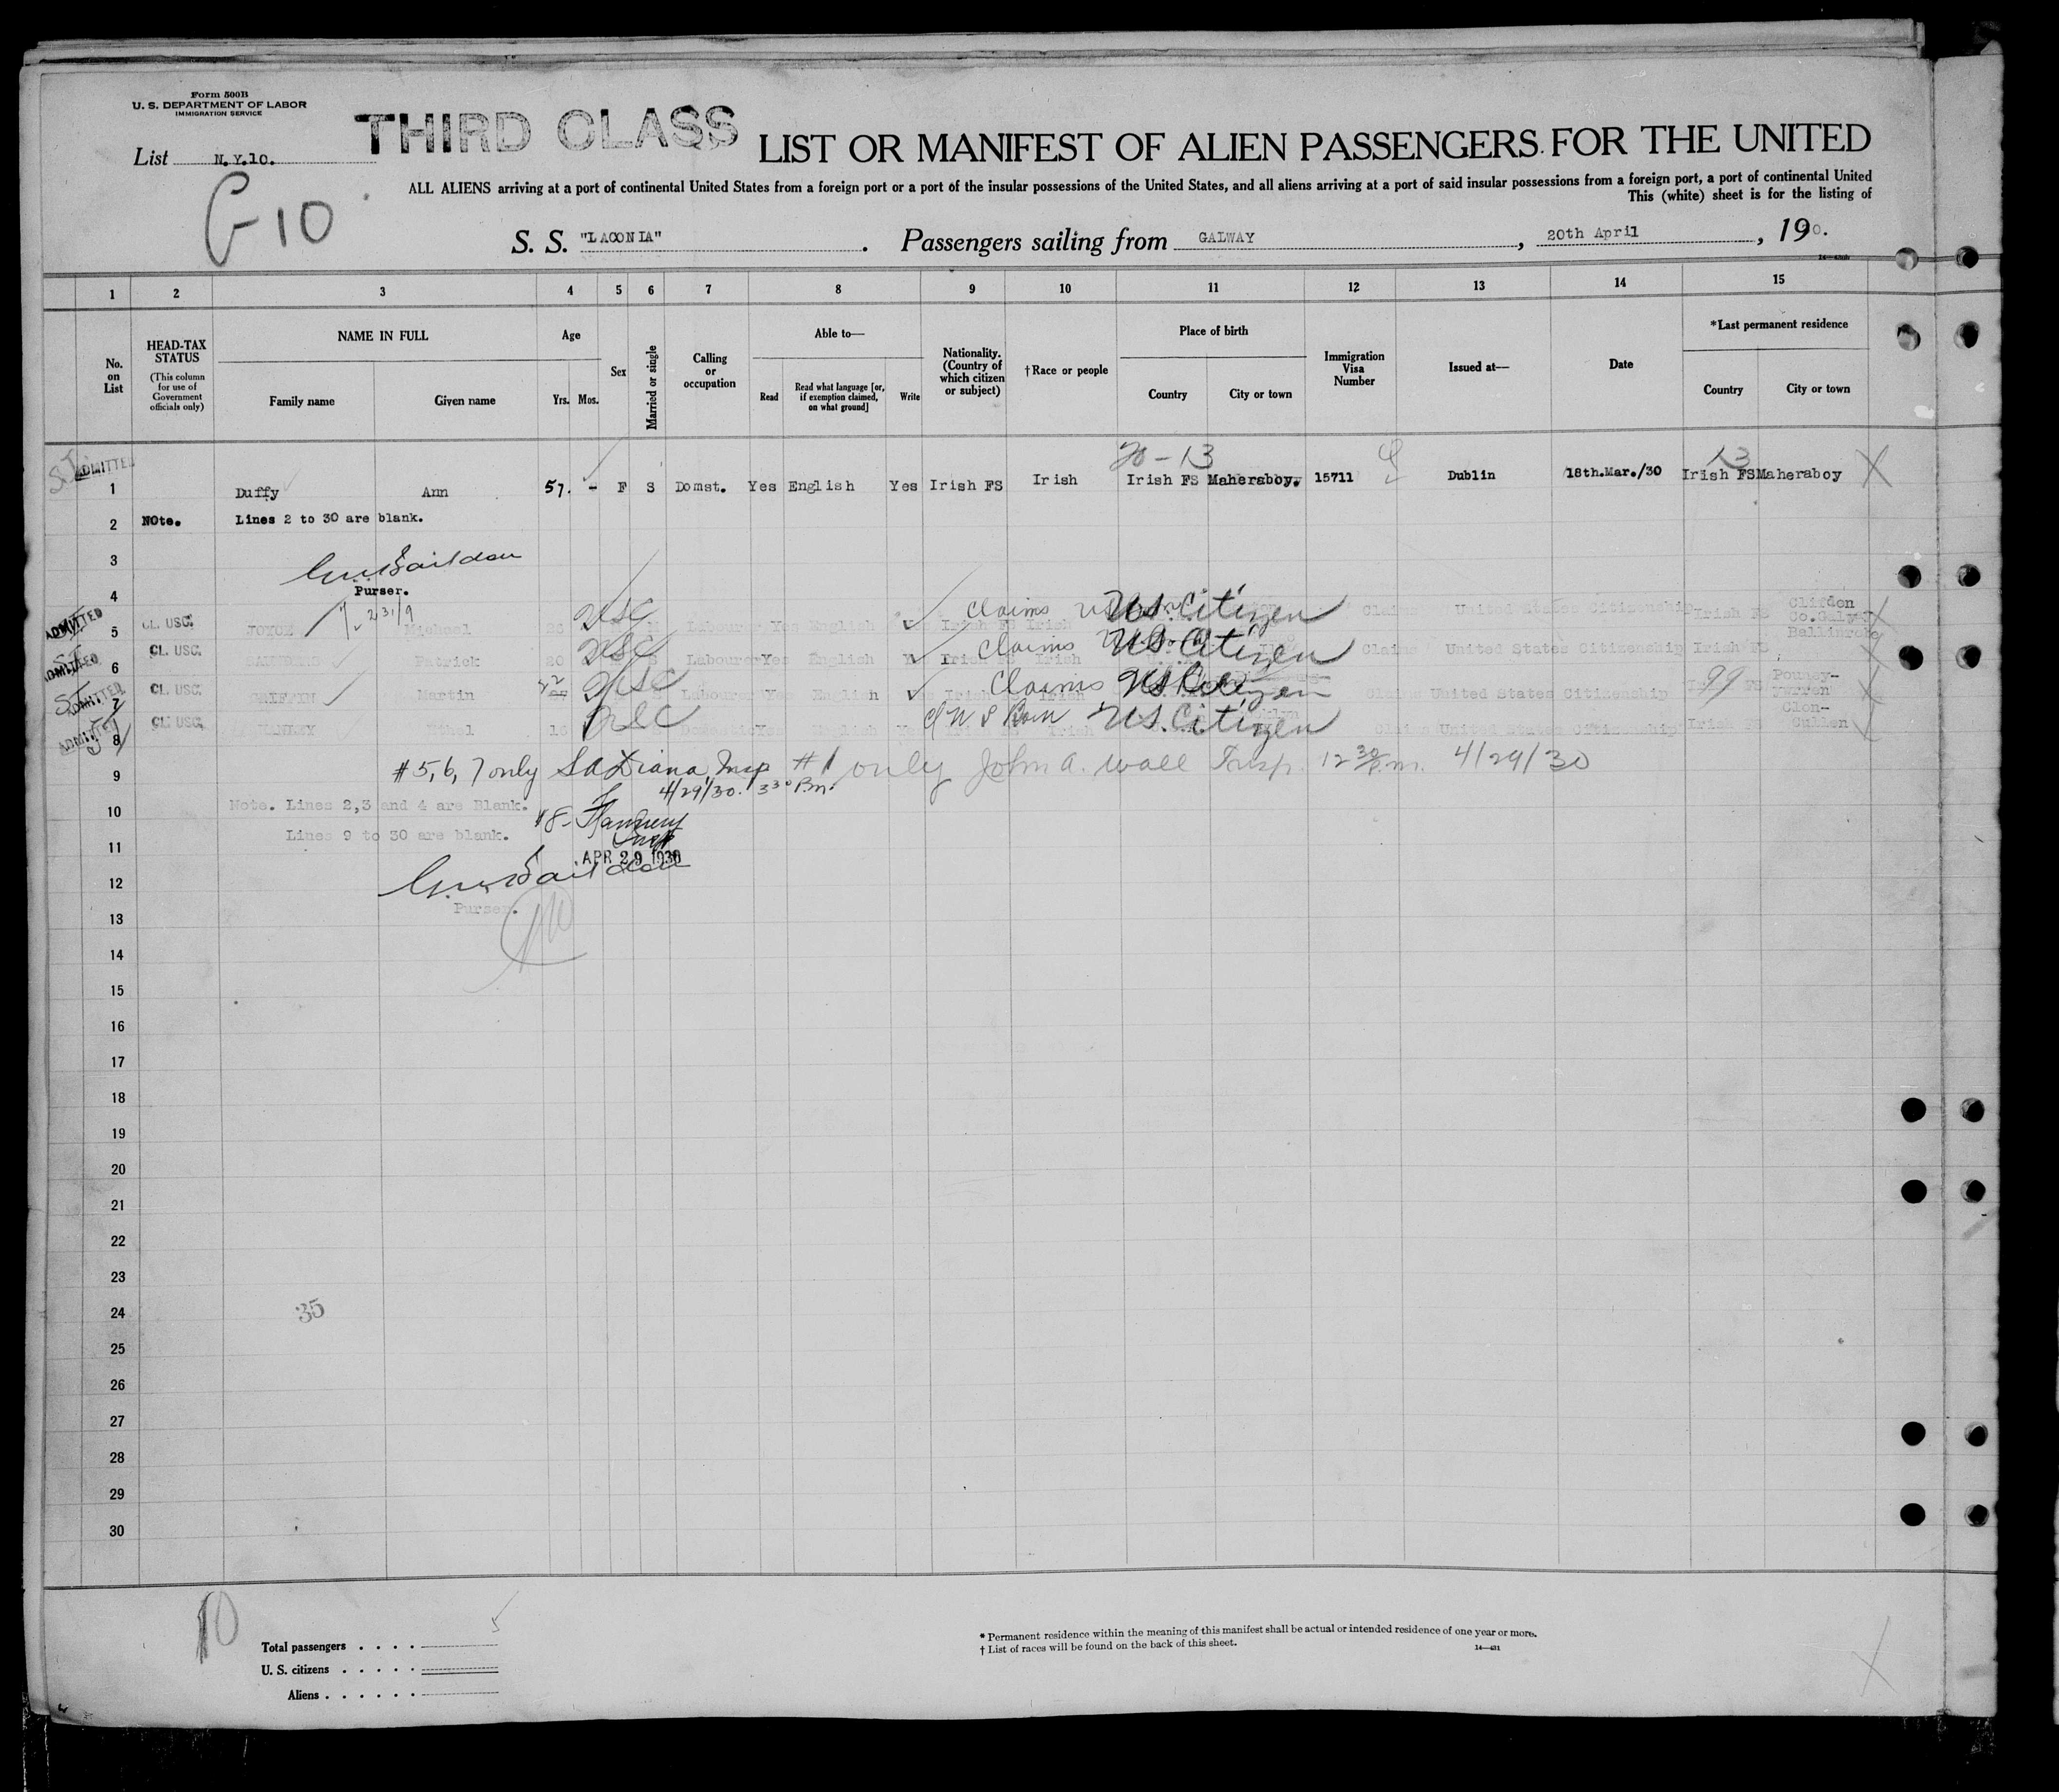 Form 500B
U. S. DEPARTMENT OF LABOR
IMMIGRATION SERVICE
THIRD CLASS
LIST OR MANIFEST OF ALIEN PASSENGERS FOR THE UNITED
List N.Y.10.
G-10
ALL ALIENS arriving at a port of continental United States from a foreign port or a port of the insular possessions of the United States, and all aliens arriving at a port of said insular possessions from a foreign port, a port of continental United
This (white) sheet is for the listing of
S. S. "LACONIA". Passengers sailing from GALWAY, 20th April, 190.
1 2 3 4 5 6 7 8 9 10 11 12 13 14 15
No. on List
HEAD-TAX STATUS (This column for use of Government officials only)
NAME IN FULL Family name Given name
Age Yrs. Mos.
Sex
Married or single
Calling or occupation
Able to— Read Read what language [or, if exemption claimed, on what ground] Write
Nationality. (Country of which citizen or subject)
†Race or people
Place of birth Country City or town
Immigration Visa Number
Issued at—
Date
*Last permanent residence Country City or town
20-13 13
ADMITTED
1 Duffy Ann 57. - F S Domst. Yes English Yes Irish FS Irish Irish FS Maheraboy. 15711 Dublin 18th.Mar./30 Irish FS Maheraboy X
2 NOte. Lines 2 to 30 are blank.
3
Purser.
4
ADMITTED 5 CL. USC. JOYCE Michael USC Labourer Yes English Irish FS Irish claims US Citizen Claims United States Citizenship Irish FS Clifden Co.Galway X
ADMITTED 6 CL. USC. Patrick 20 USC S Labourer Yes English Irish FS Irish claims US Citizen Claims United States Citizenship Irish FS Ballinrobe
ADMITTED 7 CL. USC. GRIFFIN Martin 22 USC Labourer Yes English Irish claims US Citizen Claims United States Citizenship 99
ADMITTED 8 CL. USC. Ethel 16 USC Domestic Yes English Yes Irish Born US. Citizen Claims United States Citizenship Irish FS Clon- Cullen
9 #5, 6, 7 only Insp #1 only John A. Wall Insp. 12 30 P.m. 4/29/30
4/29/30. 3 30 Pm.
10 Note. Lines 2,3 and 4 are Blank.
#8-
Lines 9 to 30 are blank.
11
APR 29 1930
12
Purser.
13
14
15
16
17
18
19
20
21
22
23
24 35
25
26
27
28
29
30
10
Total passengers . . . . 5
U. S. citizens . . . . .
Aliens . . . . . .
* Permanent residence within the meaning of this manifest shall be actual or intended residence of one year or more.
† List of races will be found on the back of this sheet.
X